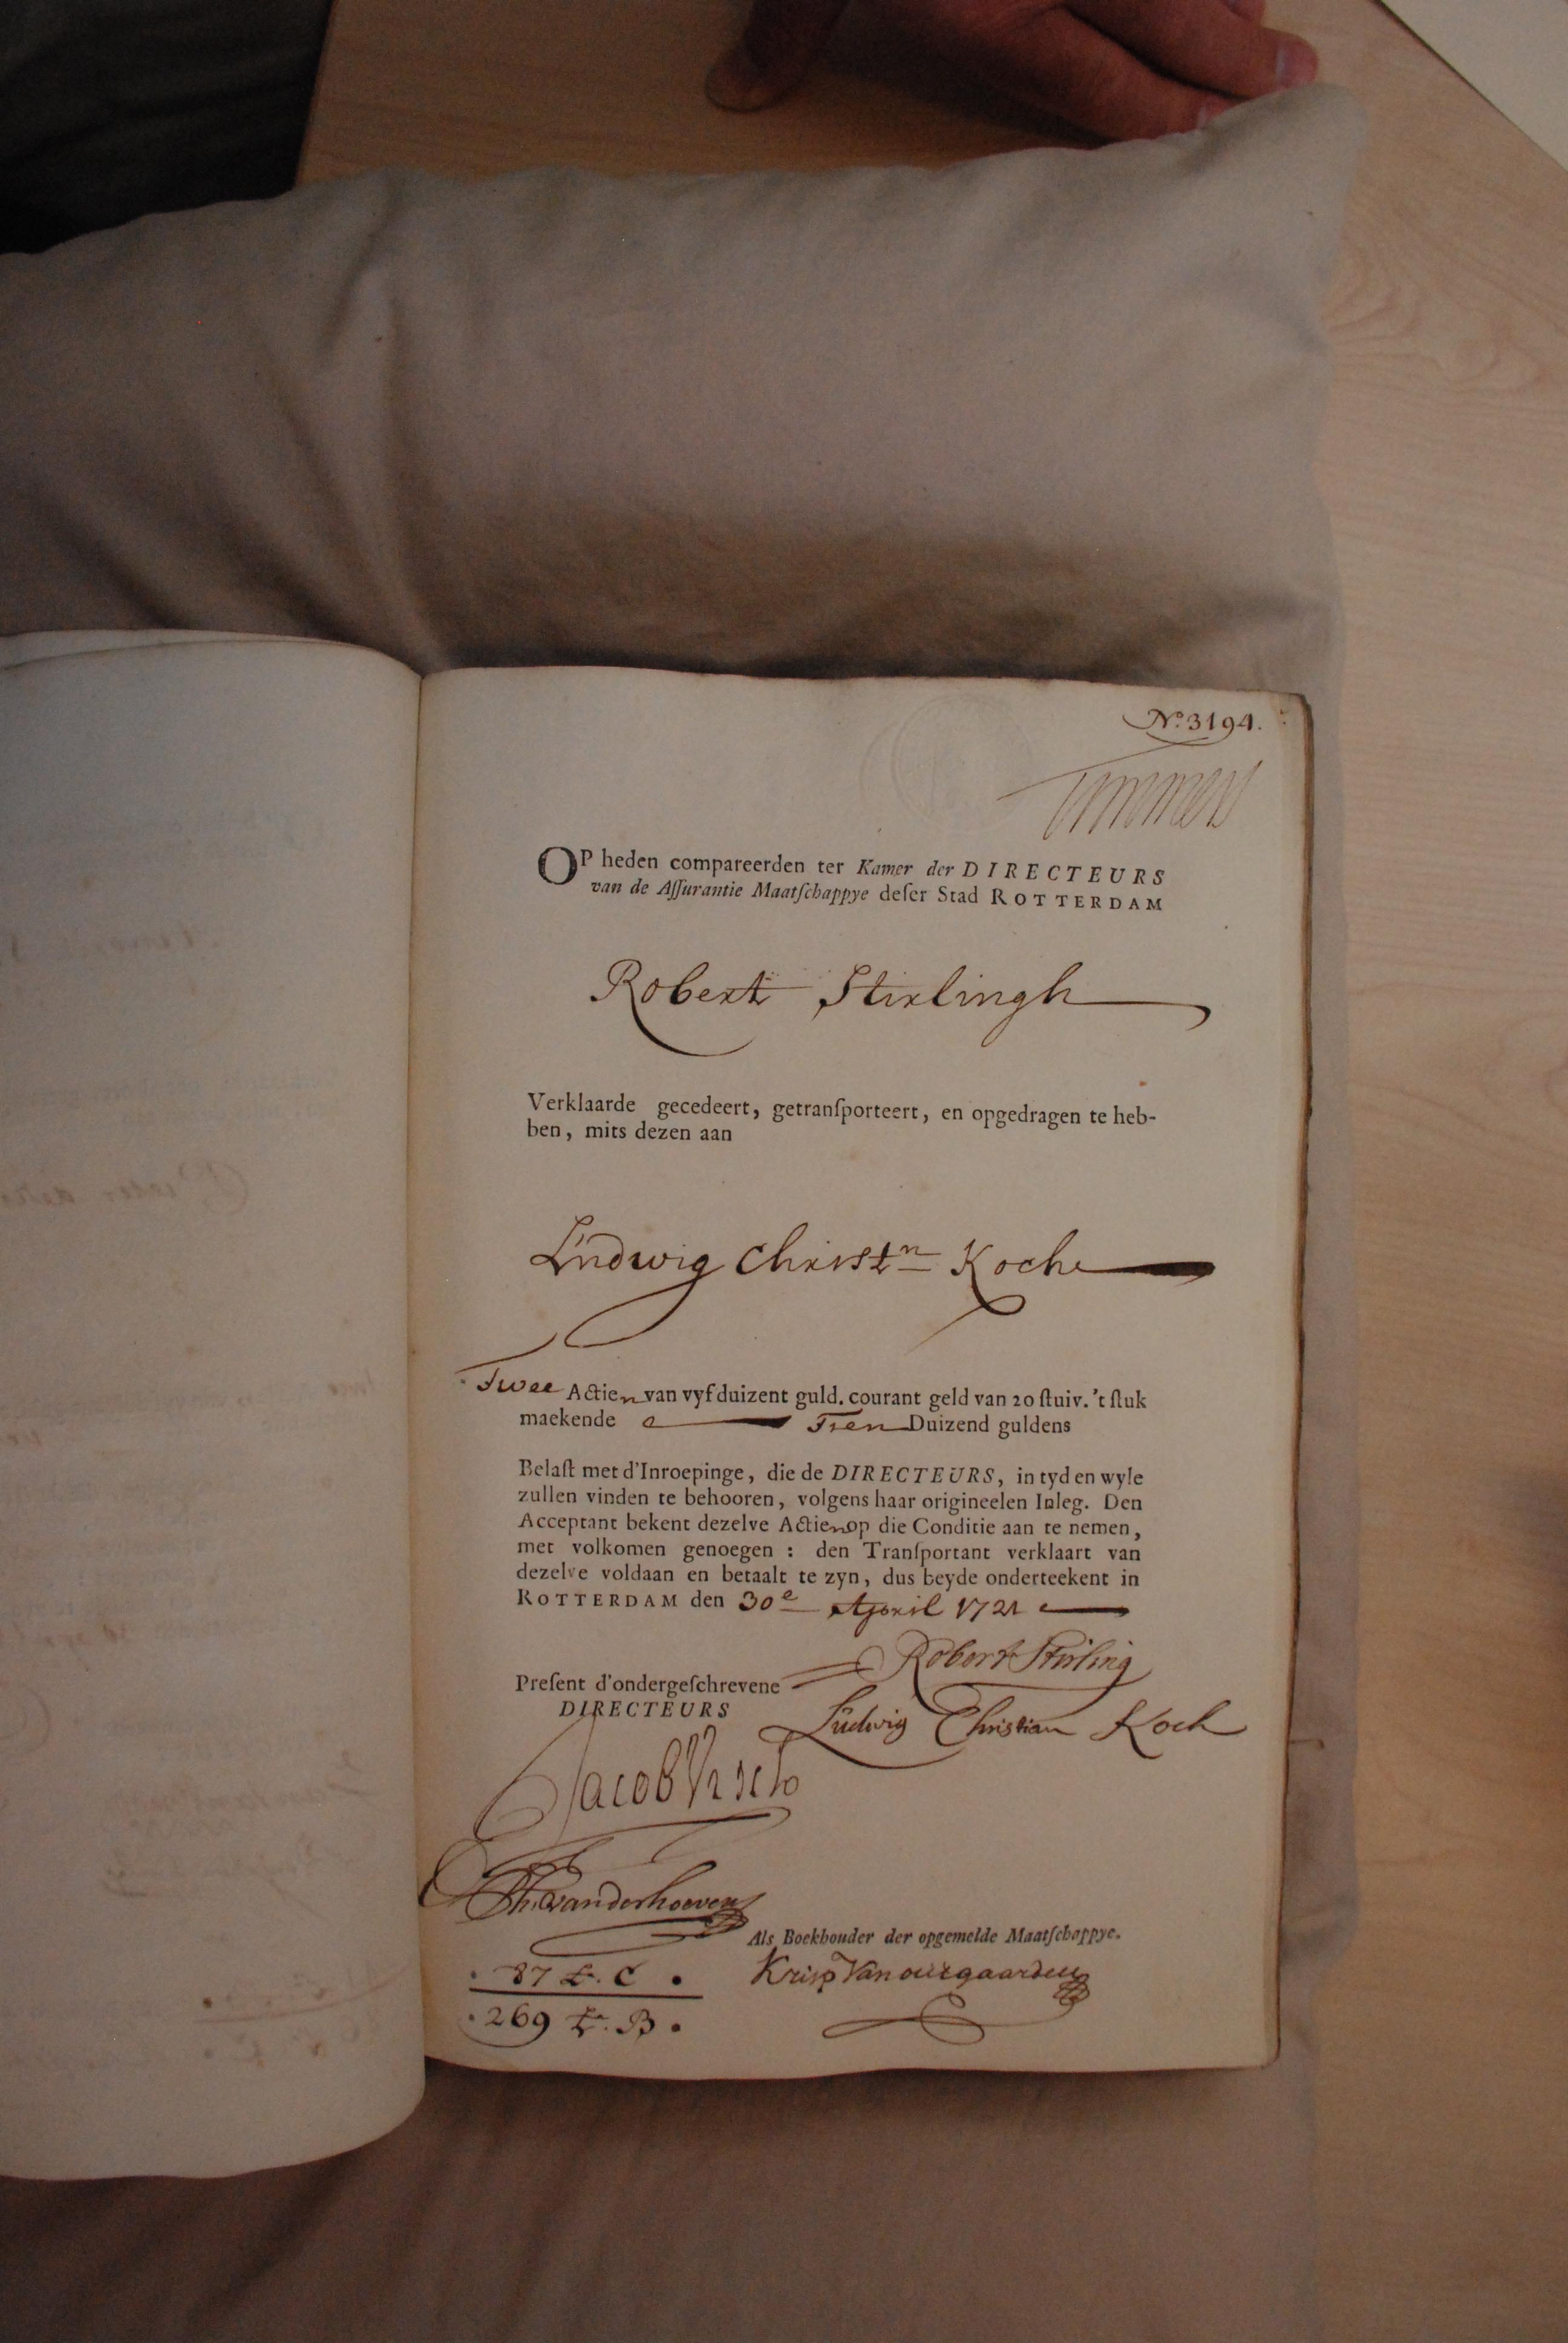 No. 3194.
Timmers
OP heden compareerden ter Kamer der DIRECTEURS
van de Aſſurantie Maatſchappye deſer Stad ROTTERDAM
Robert Stirlingh
Verklaarde gecedeert, getranſporteert, en opgedragen te heb-
ben, mits dezen aan
Ludwig Christn Koche
Twee Actien van vyf duizent guld. courant geld van 20 ſtuiv. 't ſtuk
maekende Tien Duizend guldens
Belaſt met d'Inroepinge, die de DIRECTEURS, in tyd en wyle
zullen vinden te behooren, volgens haar origineelen Inleg. Den
Acceptant bekent dezelve Actien op die Conditie aan te nemen,
met volkomen genoegen : den Tranſportant verklaart van
dezelve voldaan en betaalt te zyn, dus beyde onderteekent in
ROTTERDAM den 30e April 1721
Robert Stirling
Preſent d'ondergeſchrevene
DIRECTEURS
Ludwig Christian Koch
Jacob Visch
vanderhoeven
Als Boekhouder der opgemelde Maatſchappye.
87 L. C.
269 L. B.